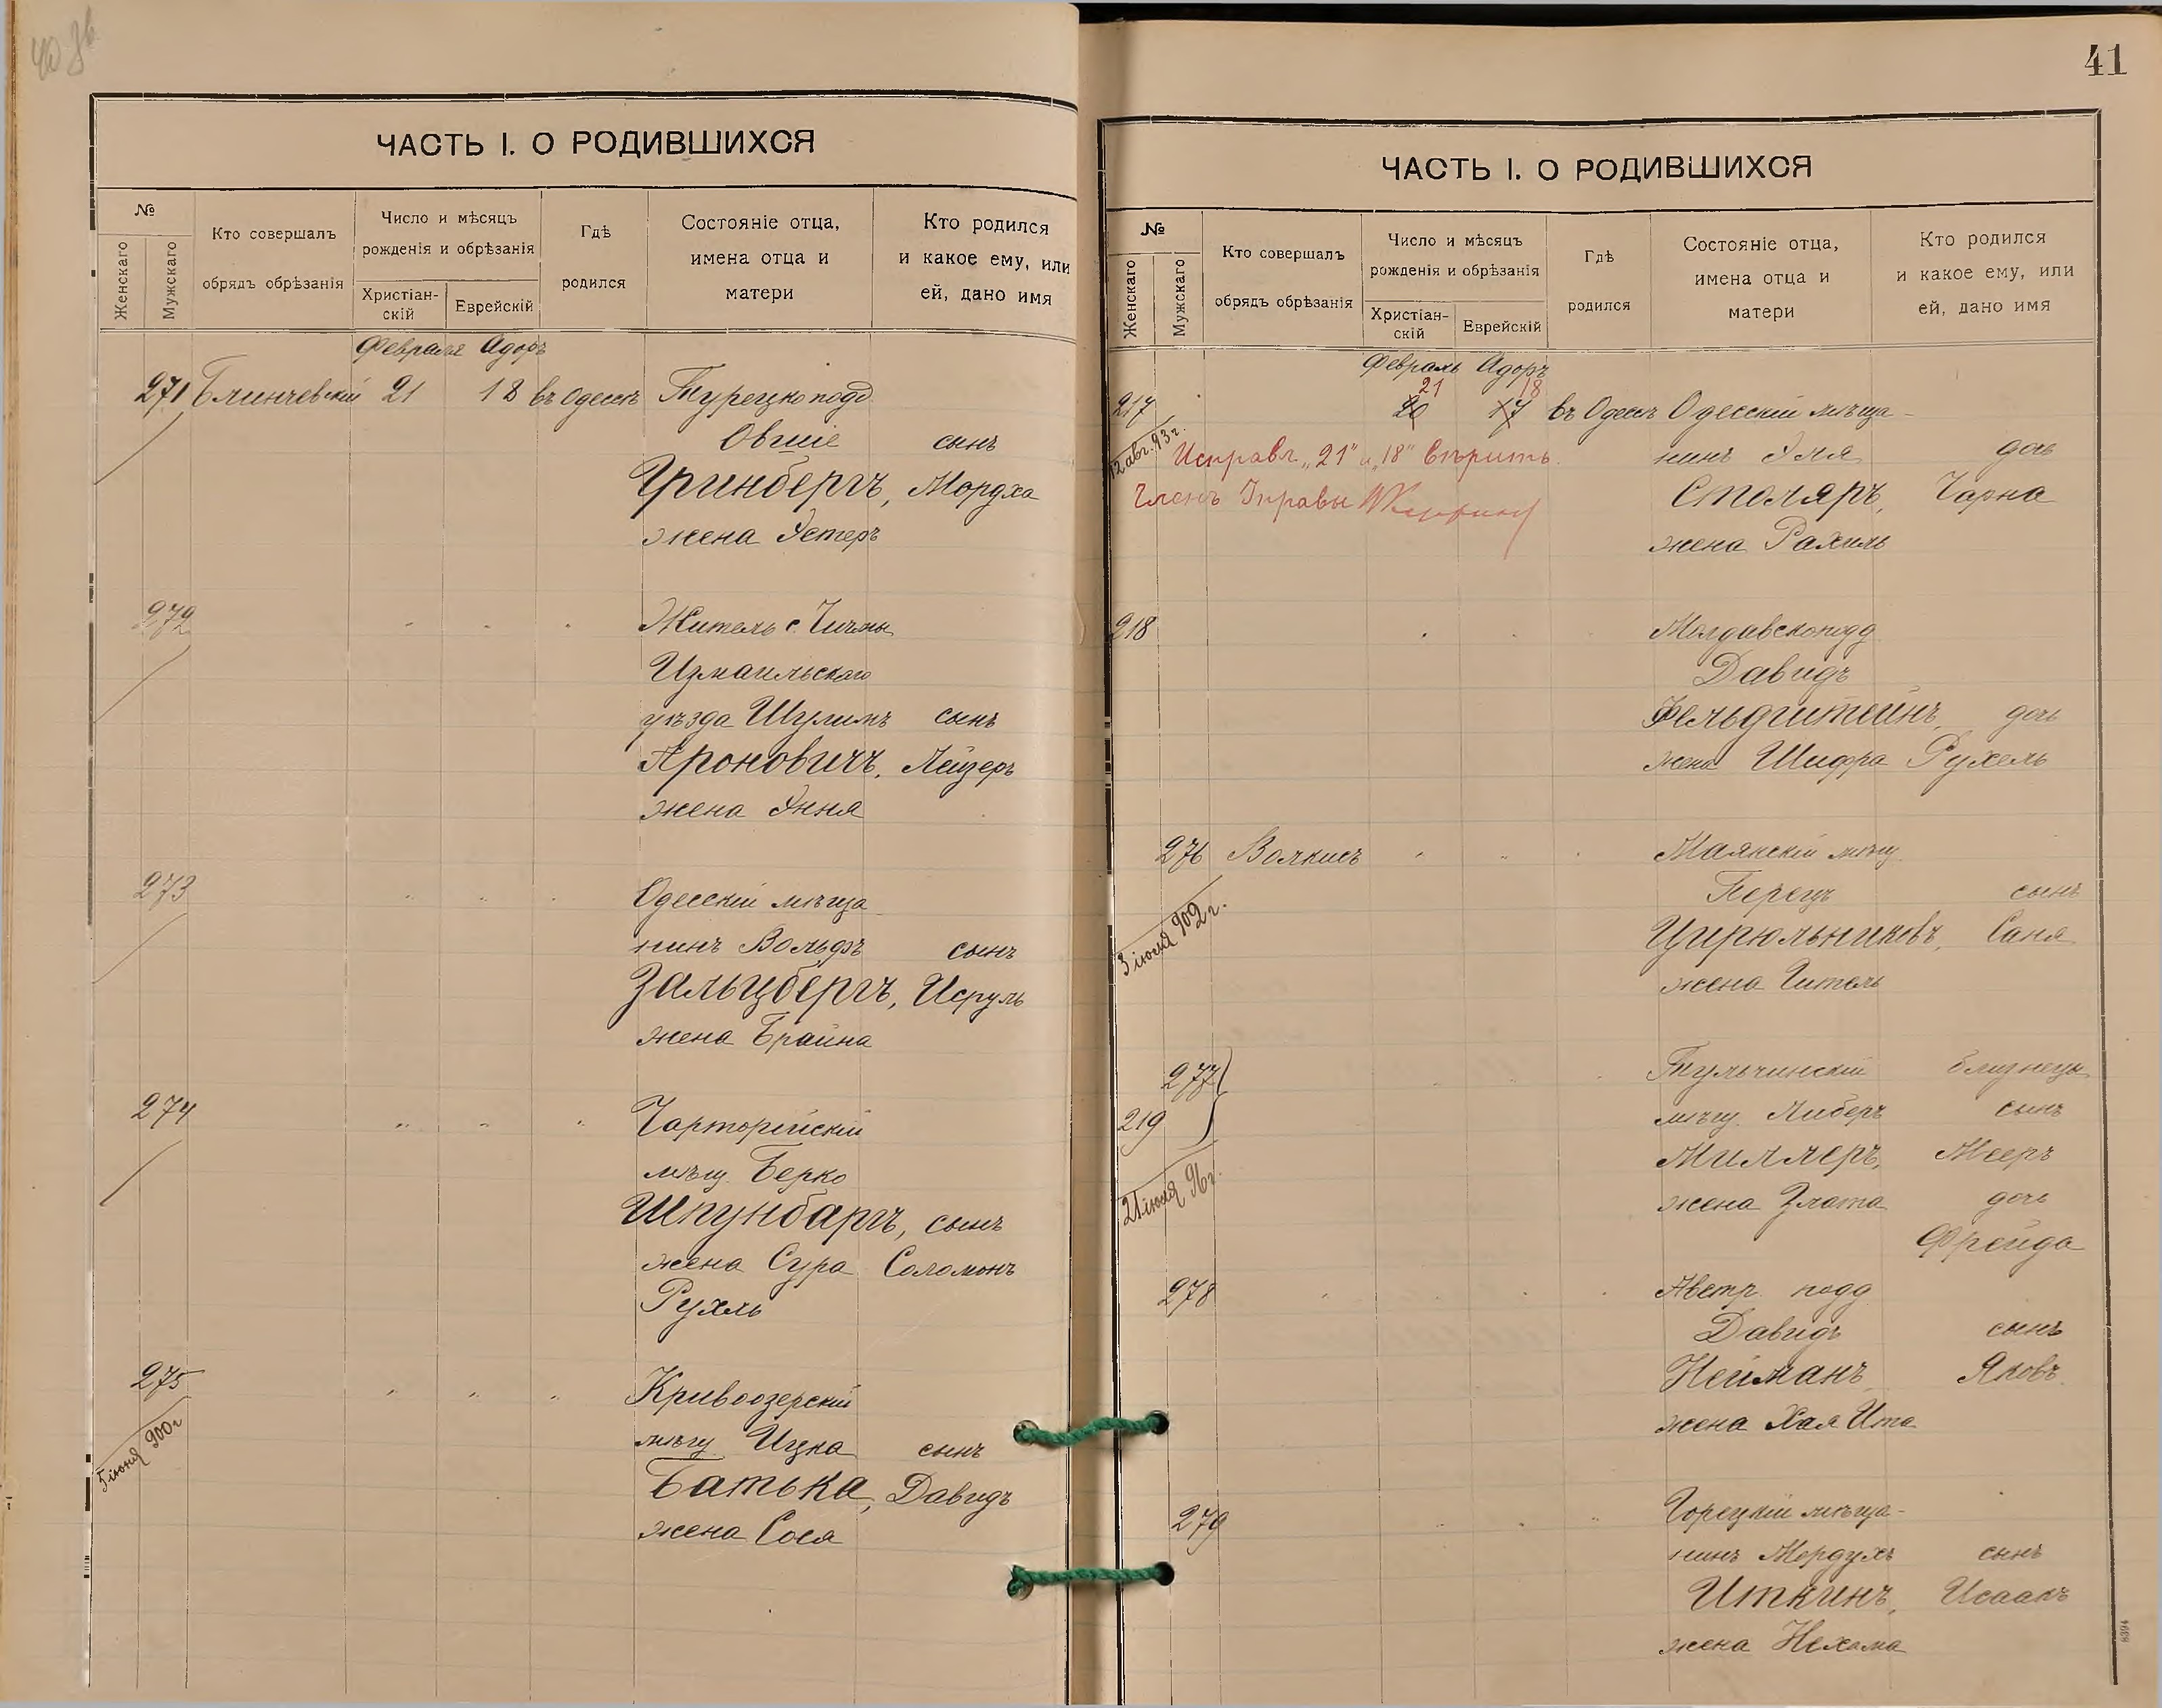 40 об
ЧАСТЬ I. О РОДИВШИХСЯ
№
Женскаго
Мужскаго
Кто совершалъ
обрядъ обрѣзанія
Число и мѣсяцъ
рожденія и обрѣзанія
Христіан-
скій
Еврейскій
Гдѣ
родился
Состояніе отца,
имена отца и
матери
Кто родился
и какое ему, или
ей, дано имя
Февраля Адоръ
271 Блинчевскій 21 18 въ Одессѣ Турецкоподд
Овшіе сынъ
Гринбергъ, Мордха
жена Эстеръ
272 " " " Житель с.
Измаильскаго
уѣзда Шулимъ сынъ
Ароновичъ, Лейзеръ
жена Эння
273 " " " Одесскій мѣща-
нинъ Вольфъ сынъ
Зальцбергъ, Исруль
жена Брайна
274 " " " Чарторійскій
мѣщ. Берко
Шпунбаргъ, сынъ
жена Сура Соломонъ
Рухль
275 " " " Кривоозерскій
5 іюня 900 г
мѣщ Ицка сынъ
Батька, Давидъ
жена Сося
41
ЧАСТЬ I. О РОДИВШИХСЯ
№
Женскаго
Мужскаго
Кто совершалъ
обрядъ обрѣзанія
Число и мѣсяцъ
рожденія и обрѣзанія
Христіан-
скій
Еврейскій
Гдѣ
родился
Состояніе отца,
имена отца и
матери
Кто родился
и какое ему, или
ей, дано имя
Февраль Адоръ
21 18
217 20 17 въ Одессѣ Одесскій мѣща-
12 авг. 93 г.
Исправл. „21" и „18" вѣрить.
нинъ Эля дочь
Членъ Управы
Столяръ, Чарна
жена Рахиль
218 " " Молдавскоподд
Давидъ
Фельдштейнъ, дочь
жена Шифра Рухель
276 Волкисъ " " " Маякскій мѣщ
Перецъ сынъ
3 іюля 902 г.
Цирюльниковъ, Саня
жена Гитель
277 " " " Тульчинскій близнецы
219 мѣщ. Либеръ сынъ
Миллеръ, Мееръ
21 іюля 96 г.
жена Злата дочь
Фрейда
278 " " " " Австр. подд
Давидъ сынъ
Нейманъ Яковъ
жена Хая Ита
279 " " " Горецкій мѣща-
нинъ Мордухъ сынъ
Иткинъ, Исаакъ
жена Нехама
8394